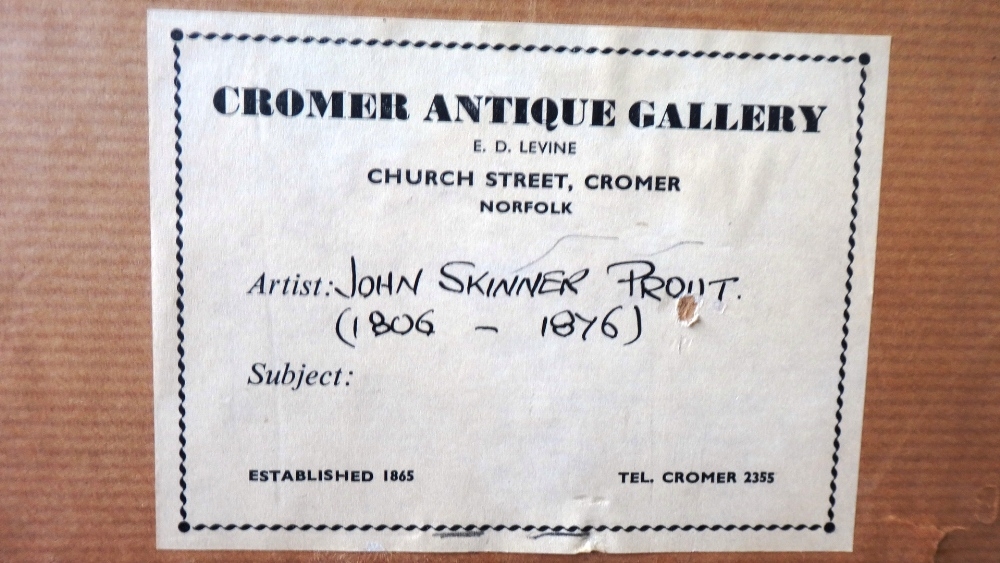 CROMER ANTIQUE GALLERY
E. D. LEVINE
CHURCH STREET, CROMER
NORFOLK
Artist: JOHN SKINNER PROUT.
(1806 - 1876)
Subject:
ESTABLISHED 1865 TEL. CROMER 2355